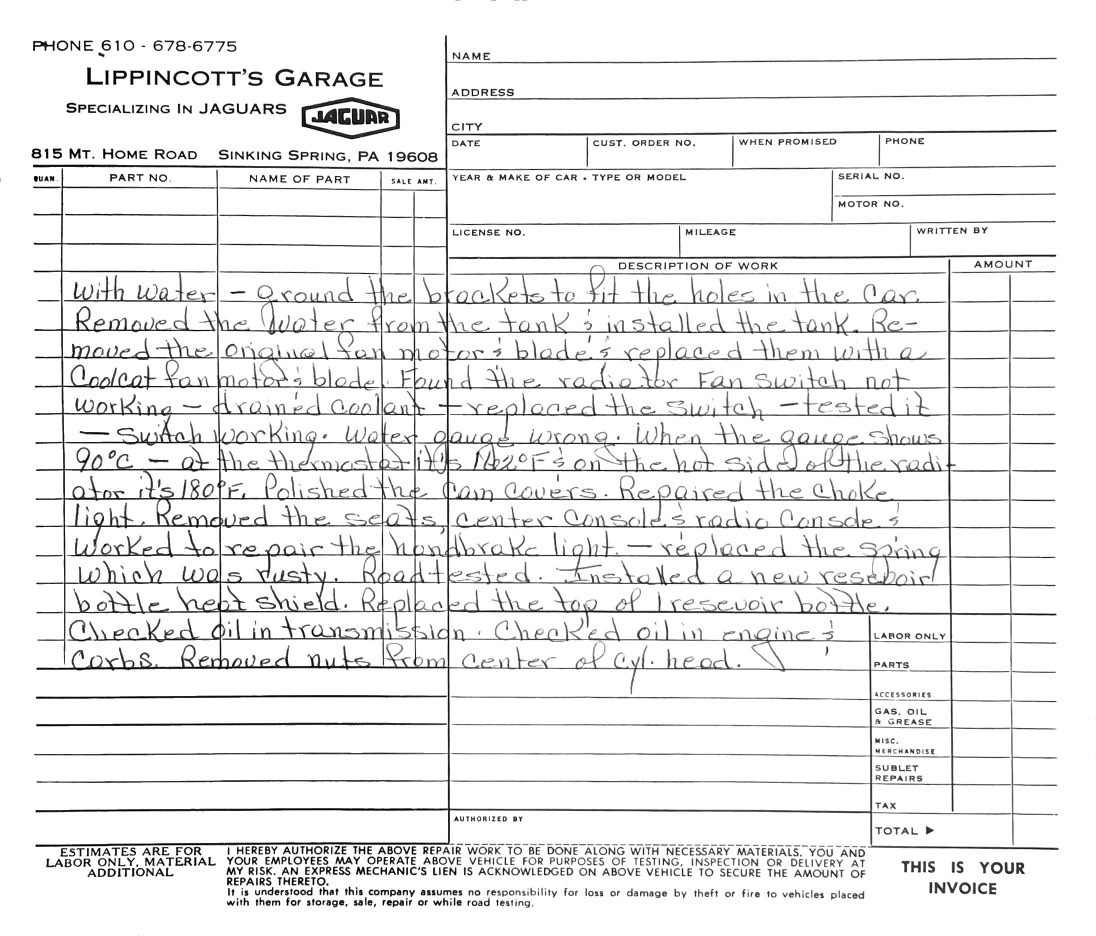 PHONE 610 - 678-6775
LIPPINCOTT'S GARAGE
SPECIALIZING IN JAGUARS
JAGUAR
815 MT. HOME ROAD SINKING SPRING, PA 19608
NAME
ADDRESS
CITY
DATE CUST. ORDER NO. WHEN PROMISED PHONE
QUAN. PART NO. NAME OF PART SALE AMT.
YEAR & MAKE OF CAR - TYPE OR MODEL SERIAL NO.
MOTOR NO.
LICENSE NO. MILEAGE WRITTEN BY
DESCRIPTION OF WORK AMOUNT
with water — ground the brackets to fit the holes in the car.
Removed the water from the tank & installed the tank. Re-
moved the original fan motor & blade & replaced them with a
Coolcat fan motor & blade. Found the radiator Fan Switch not
working — drained coolant — replaced the switch — tested it
— switch working. Water gauge wrong. When the gauge shows
90°C — at the thermostat it's 162°F & on the hot side of the radi-
ator it's 180°F. Polished the Cam Covers. Repaired the Choke
light. Removed the seats, center Console & radio Console &
worked to repair the handbrake light. — replaced the spring
which was rusty. Roadtested. Installed a new resevoir
bottle heat shield. Replaced the top of 1 resevoir bottle.
Checked oil in transmission. Checked oil in engine &
Carbs. Removed nuts from center of cyl. head.
LABOR ONLY
PARTS
ACCESSORIES
GAS, OIL
& GREASE
MISC.
MERCHANDISE
SUBLET
REPAIRS
TAX
AUTHORIZED BY
TOTAL ▶
ESTIMATES ARE FOR
LABOR ONLY, MATERIAL
ADDITIONAL
I HEREBY AUTHORIZE THE ABOVE REPAIR WORK TO BE DONE ALONG WITH NECESSARY MATERIALS. YOU AND
YOUR EMPLOYEES MAY OPERATE ABOVE VEHICLE FOR PURPOSES OF TESTING, INSPECTION OR DELIVERY AT
MY RISK. AN EXPRESS MECHANIC'S LIEN IS ACKNOWLEDGED ON ABOVE VEHICLE TO SECURE THE AMOUNT OF
REPAIRS THERETO.
It is understood that this company assumes no responsibility for loss or damage by theft or fire to vehicles placed
with them for storage, sale, repair or while road testing.
THIS IS YOUR
INVOICE